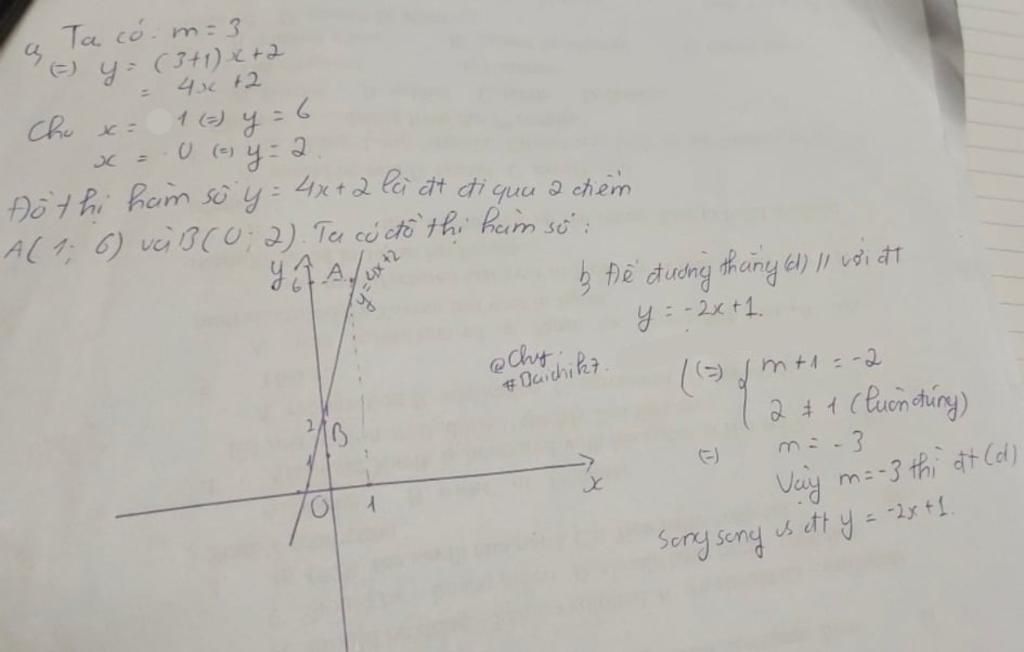 a, Ta có: m = 3
(=) y = (3+1)x+2
= 4x +2
Cho x = 1 (=) y = 6
x = 0 (=) y = 2.
Đồ thị hàm số y = 4x+2 là đt đi qua 2 điểm
A(1; 6) và B(0; 2). Ta có đồ thị hàm số:
y
6
A
y=4x+2
2
B
1
O
1
x
@Chy.
b, Để đường thẳng (d) // với đt
y = -2x+1.
(=) { m+1 = -2
2 ≠ 1 (luôn đúng)
(=) m = -3
Vậy m=-3 thì đt (d)
Song song vs đt y = -2x+1.